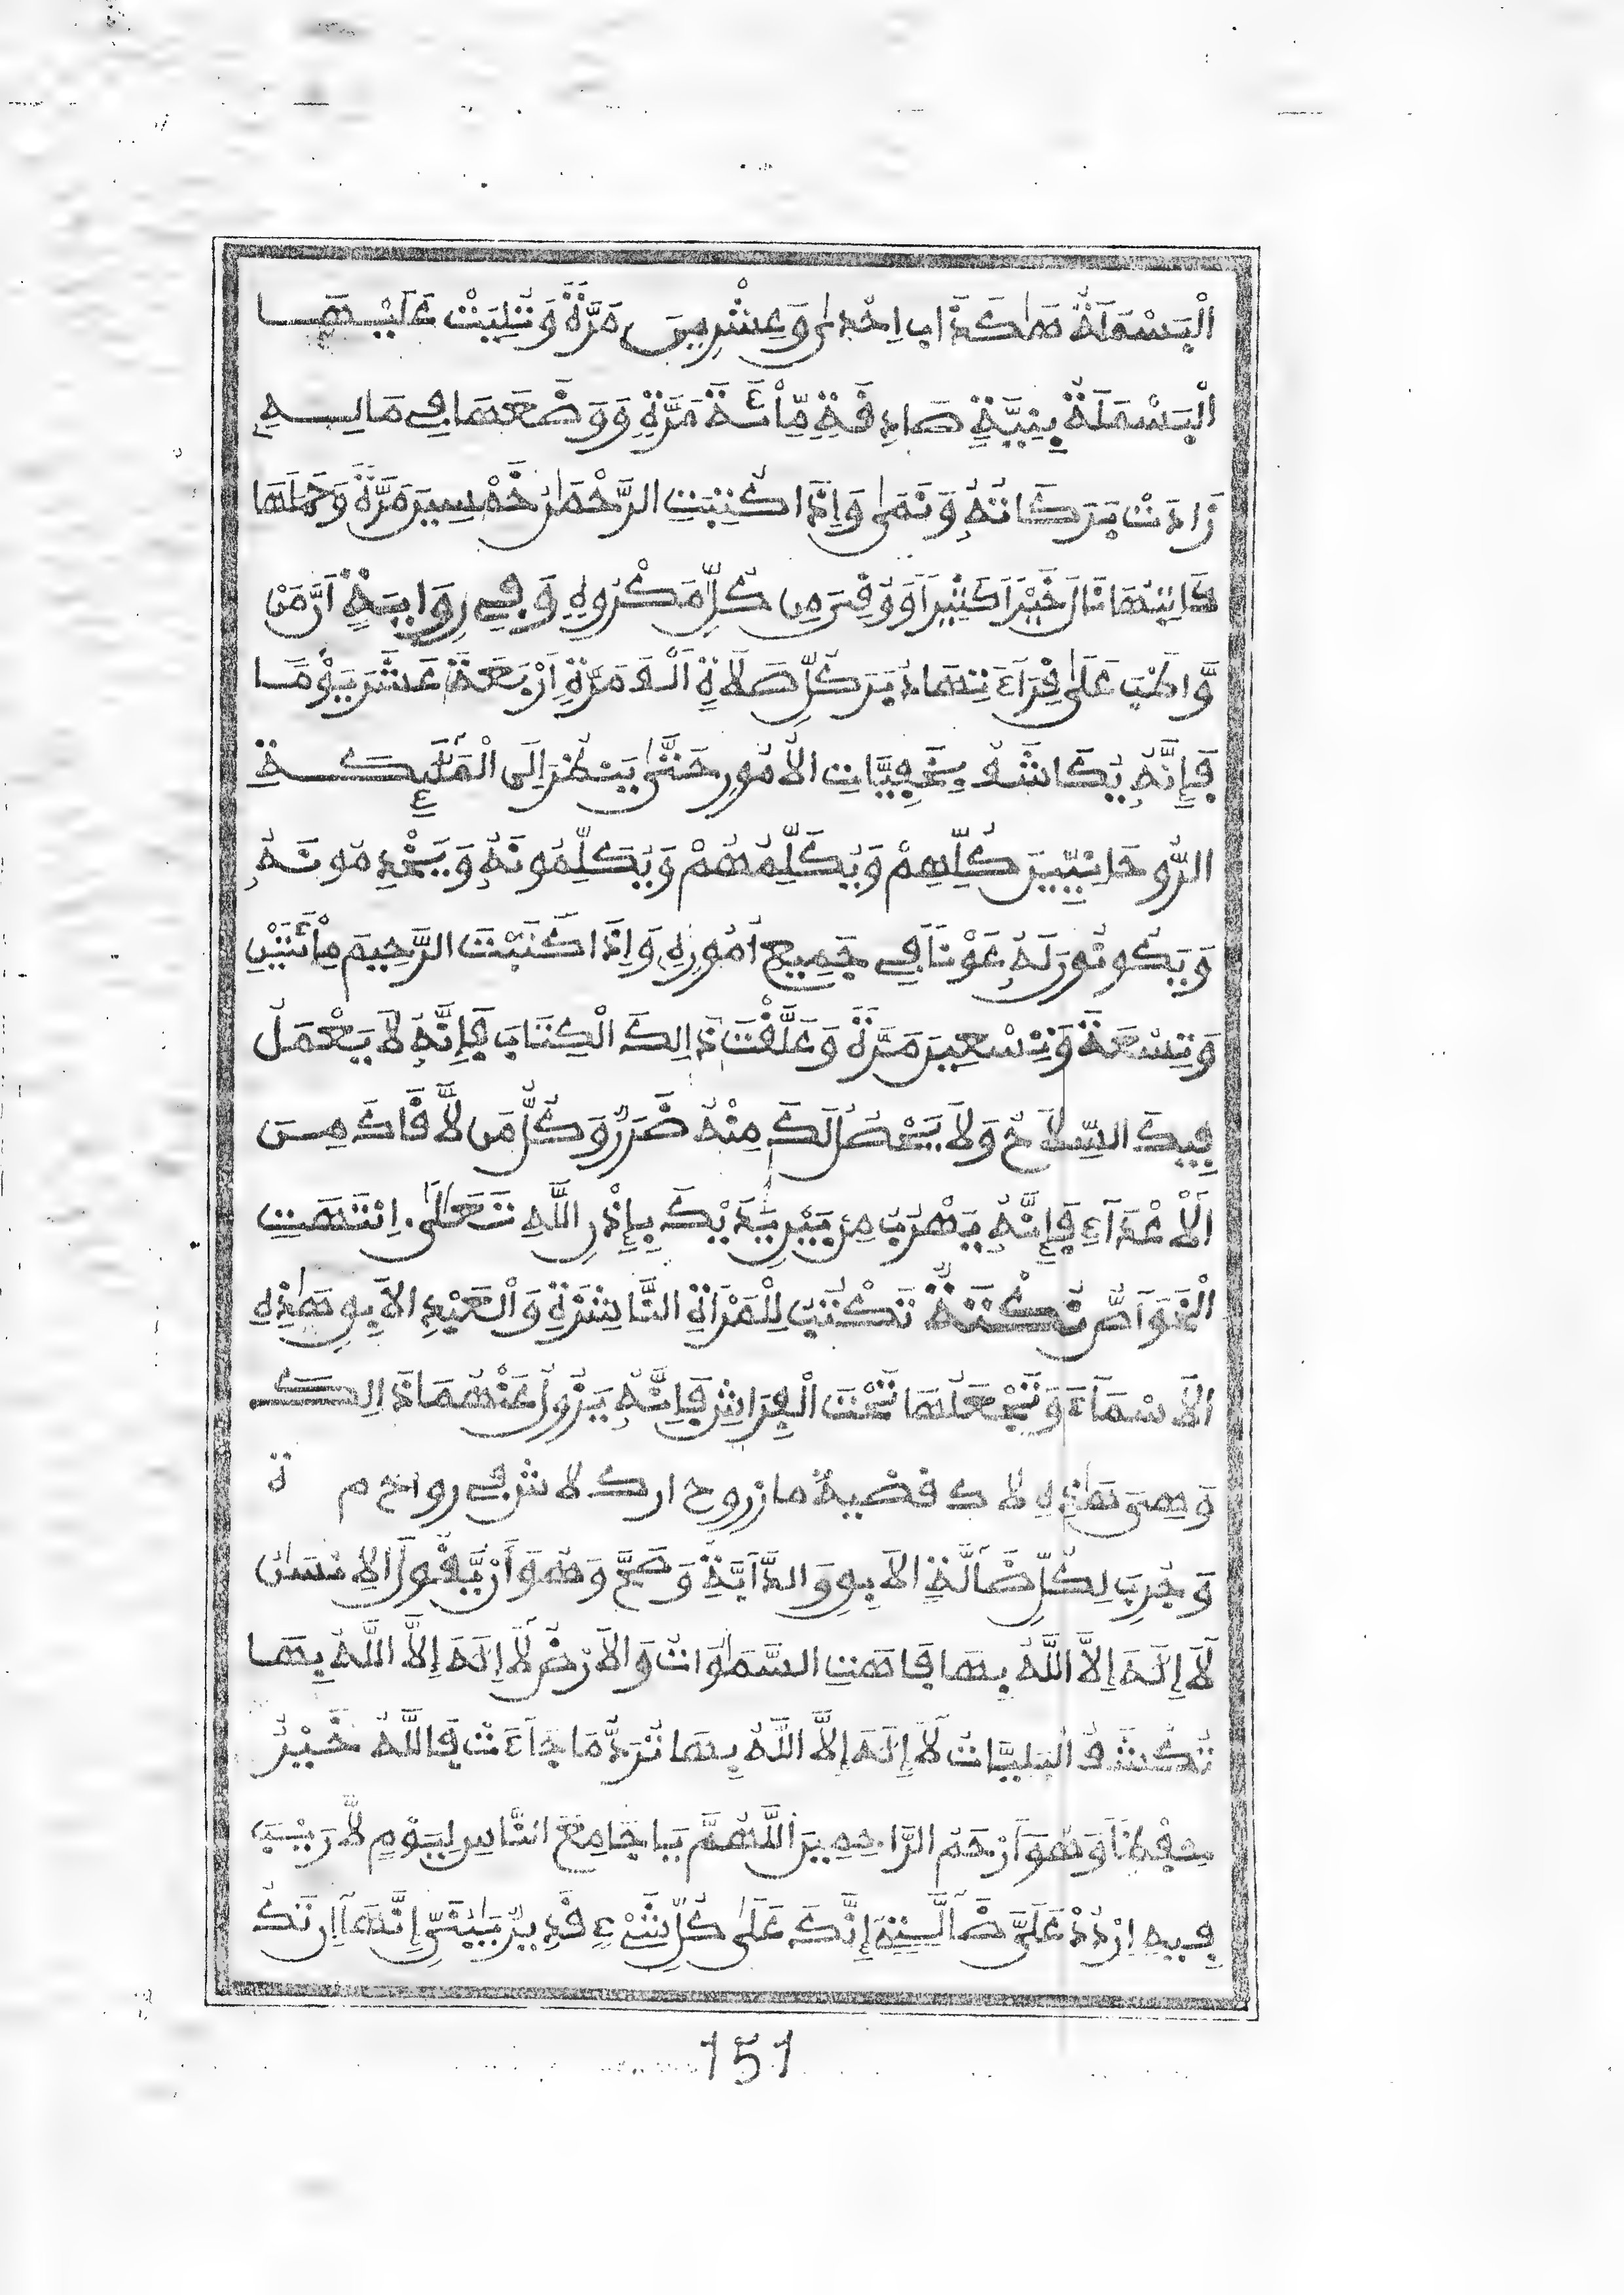 الْبَسْمَلَةُ هَٰكَذَا إِحْدَىٰ وَعِشْرِينَ مَرَّةً وَتُلِيَتْ عَلَيْهَا
الْبَسْمَلَةُ بِنِيَّةٍ صَادِقَةٍ مِّائَةَ مَرَّةٍ وَوَضَعَهَا فِي مَالِهِ
زَادَتْ بَرَكَاتُهُ وَنَمَىٰ وَإِذَا كُتِبَتِ الرَّحْمَٰنُ خَمْسِينَ مَرَّةً وَحَمَلَهَا
كَاتِبُهَا نَالَ خَيْراً كَثِيراً وَوُقِيَ مِن كُلِّ مَكْرُوهٍ وَفِي رِوَايَةٍ أَنَّ مَنْ
وَّاظَبَ عَلَىٰ قِرَآءَتِهَا دُبُرَ كُلِّ صَلَاةٍ أَلْفَ مَرَّةٍ أَرْبَعَةَ عَشَرَ يَوْمًا
فَإِنَّهُ يُكَاشَفُ بِخَفِيَّاتِ الْأُمُورِ حَتَّىٰ يَنْظُرَ إِلَى الْمَلَٰٓئِكَةِ
الرُّوحَانِيِّينَ كُلِّهِمْ وَيُكَلِّمُهُمْ وَيُكَلِّمُونَهُ وَيَخْدِمُونَهُ
وَيَكُونُونَ لَهُ عَوْناً فِي جَمِيعِ أُمُورِهِ وَإِذَا كَتَبْتَ الرَّحِيمَ مِائَتَيْنِ
وَتِسْعَةً وَتِسْعِينَ مَرَّةً وَعَلَّقْتَ ذَالِكَ الْكِتَابَ فَإِنَّهُ لَا يَعْمَلُ
فِيكَ السِّلَاحُ وَلَا يَحْصُلُ لَكَ مِنْهُ ضَرَرٌ وَكُلُّ مَن لَّاقَاكَ مِنَ
الْأَعْدَآءِ فَإِنَّهُ يَهْرُبُ مِنْ بَيْنِ يَدَيْكَ بِإِذْنِ اللَّهِ تَعَالَىٰ. انْتَهَتِ
الْخَوَآصُّ نُكْتَةٌ تَكْتُبُ لِلْمَرْأَةِ النَّاشِزَةِ وَالْعَبْدِ الْآبِقِ هَٰذِهِ
الْأَسْمَآءَ وَتَجْعَلُهَا تَحْتَ الْفِرَاشِ فَإِنَّهُ يَزُولُ عَنْهُمَا ذَالِكَ
وَهِيَ هَٰذِهِ لا ك قضية ما زروح ارك لا ش في رواخ م ة
وَجُرِّبَ لِكُلِّ ضَآلَّةٍ الْآبِقِ وَالدَّآبَّةِ وَصَحَّ وَهُوَ أَنْ يَّقُولَ الْإِنْسَٰنُ
لَآ إِلَٰهَ إِلَّا اللَّهُ بِهَا قَامَتِ السَّمَٰوَاتُ وَالْأَرْضُ لَآ إِلَٰهَ إِلَّا اللَّهُ بِهَا
تُكْشَفُ الْبَلِيَّاتُ لَآ إِلَٰهَ إِلَّا اللَّهُ بِهَا تُرَدُّ مَا جَآءَتْ فَاللَّهُ خَيْرٌ
حِفْظًا وَهُوَ أَرْحَمُ الرَّاحِمِينَ اللَّهُمَّ يَا جَامِعَ النَّاسِ لِيَوْمٍ لَّا رَيْبَ
فِيهِ ارْدُدْ عَلَيَّ ضَآلَّتِي إِنَّكَ عَلَىٰ كُلِّ شَيْءٍ قَدِيرٌ يَٰبُنَيِّ إِنَّهَآ إِن تَكُ
151